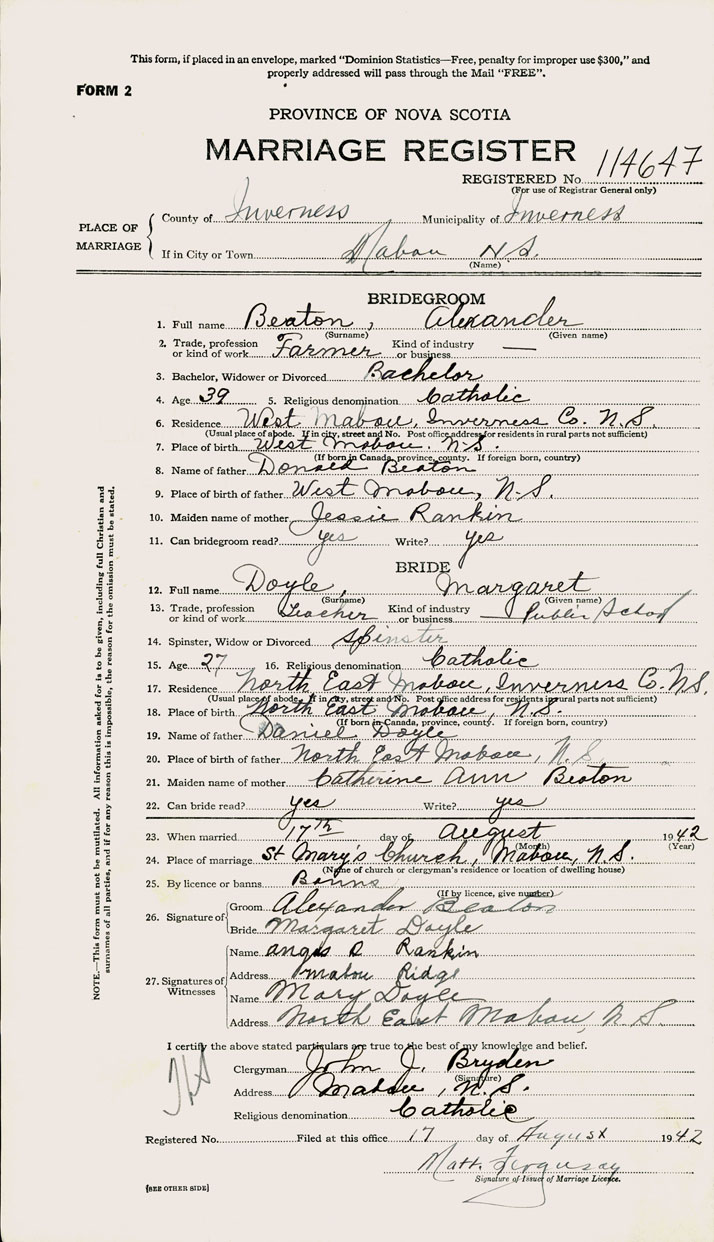 This form, if placed in an envelope, marked "Dominion Statistics—Free, penalty for improper use $300," and
properly addressed will pass through the Mail "FREE".
FORM 2
PROVINCE OF NOVA SCOTIA
MARRIAGE REGISTER
REGISTERED No. 114647
(For use of Registrar General only)
PLACE OF MARRIAGE
County of Inverness Municipality of Inverness
If in City or Town Mabou N.S.
(Name)
BRIDEGROOM
1. Full name Beaton, Alexander
(Surname) (Given name)
2. Trade, profession or kind of work Farmer Kind of industry or business —
3. Bachelor, Widower or Divorced Bachelor
4. Age 39 5. Religious denomination Catholic
6. Residence West Mabou, Inverness Co. N.S.
(Usual place of abode. If in city, street and No. Post office address for residents in rural parts not sufficient)
7. Place of birth West Mabou, N.S.
(If born in Canada, province, county. If foreign born, country)
8. Name of father Donald Beaton
9. Place of birth of father West Mabou, N.S.
10. Maiden name of mother Jessie Rankin
11. Can bridegroom read? yes Write? yes
BRIDE
12. Full name Doyle, Margaret
(Surname) (Given name)
13. Trade, profession or kind of work Teacher Kind of industry or business Public School
14. Spinster, Widow or Divorced Spinster
15. Age 27 16. Religious denomination Catholic
17. Residence North East Mabou, Inverness Co. N.S.
(Usual place of abode. If in city, street and No. Post office address for residents in rural parts not sufficient)
18. Place of birth North East Mabou, N.S.
(If born in Canada, province, county. If foreign born, country)
19. Name of father Daniel Doyle
20. Place of birth of father North East Mabou, N.S.
21. Maiden name of mother Catherine Ann Beaton
22. Can bride read? yes Write? yes
23. When married 17th day of August 1942
(Month) (Year)
24. Place of marriage St Mary's Church, Mabou, N.S.
(Name of church or clergyman's residence or location of dwelling house)
25. By licence or banns Banns
(If by licence, give number)
26. Signature of
Groom Alexander Beaton
Bride Margaret Doyle
27. Signatures of Witnesses
Name Angus D Rankin
Address Mabou Ridge
Name Mary Doyle
Address North East Mabou, N.S.
I certify the above stated particulars are true to the best of my knowledge and belief.
Clergyman John J. Bryden
(Signature)
Address Mabou, N.S.
Religious denomination Catholic
Registered No. Filed at this office 17 day of August 1942
Matt. Ferguson
Signature of Issuer of Marriage Licence.
[SEE OTHER SIDE]
NOTE.—This form must not be mutilated. All information asked for is to be given, including full Christian and
surnames of all parties, and if for any reason this is impossible, the reason for the omission must be stated.